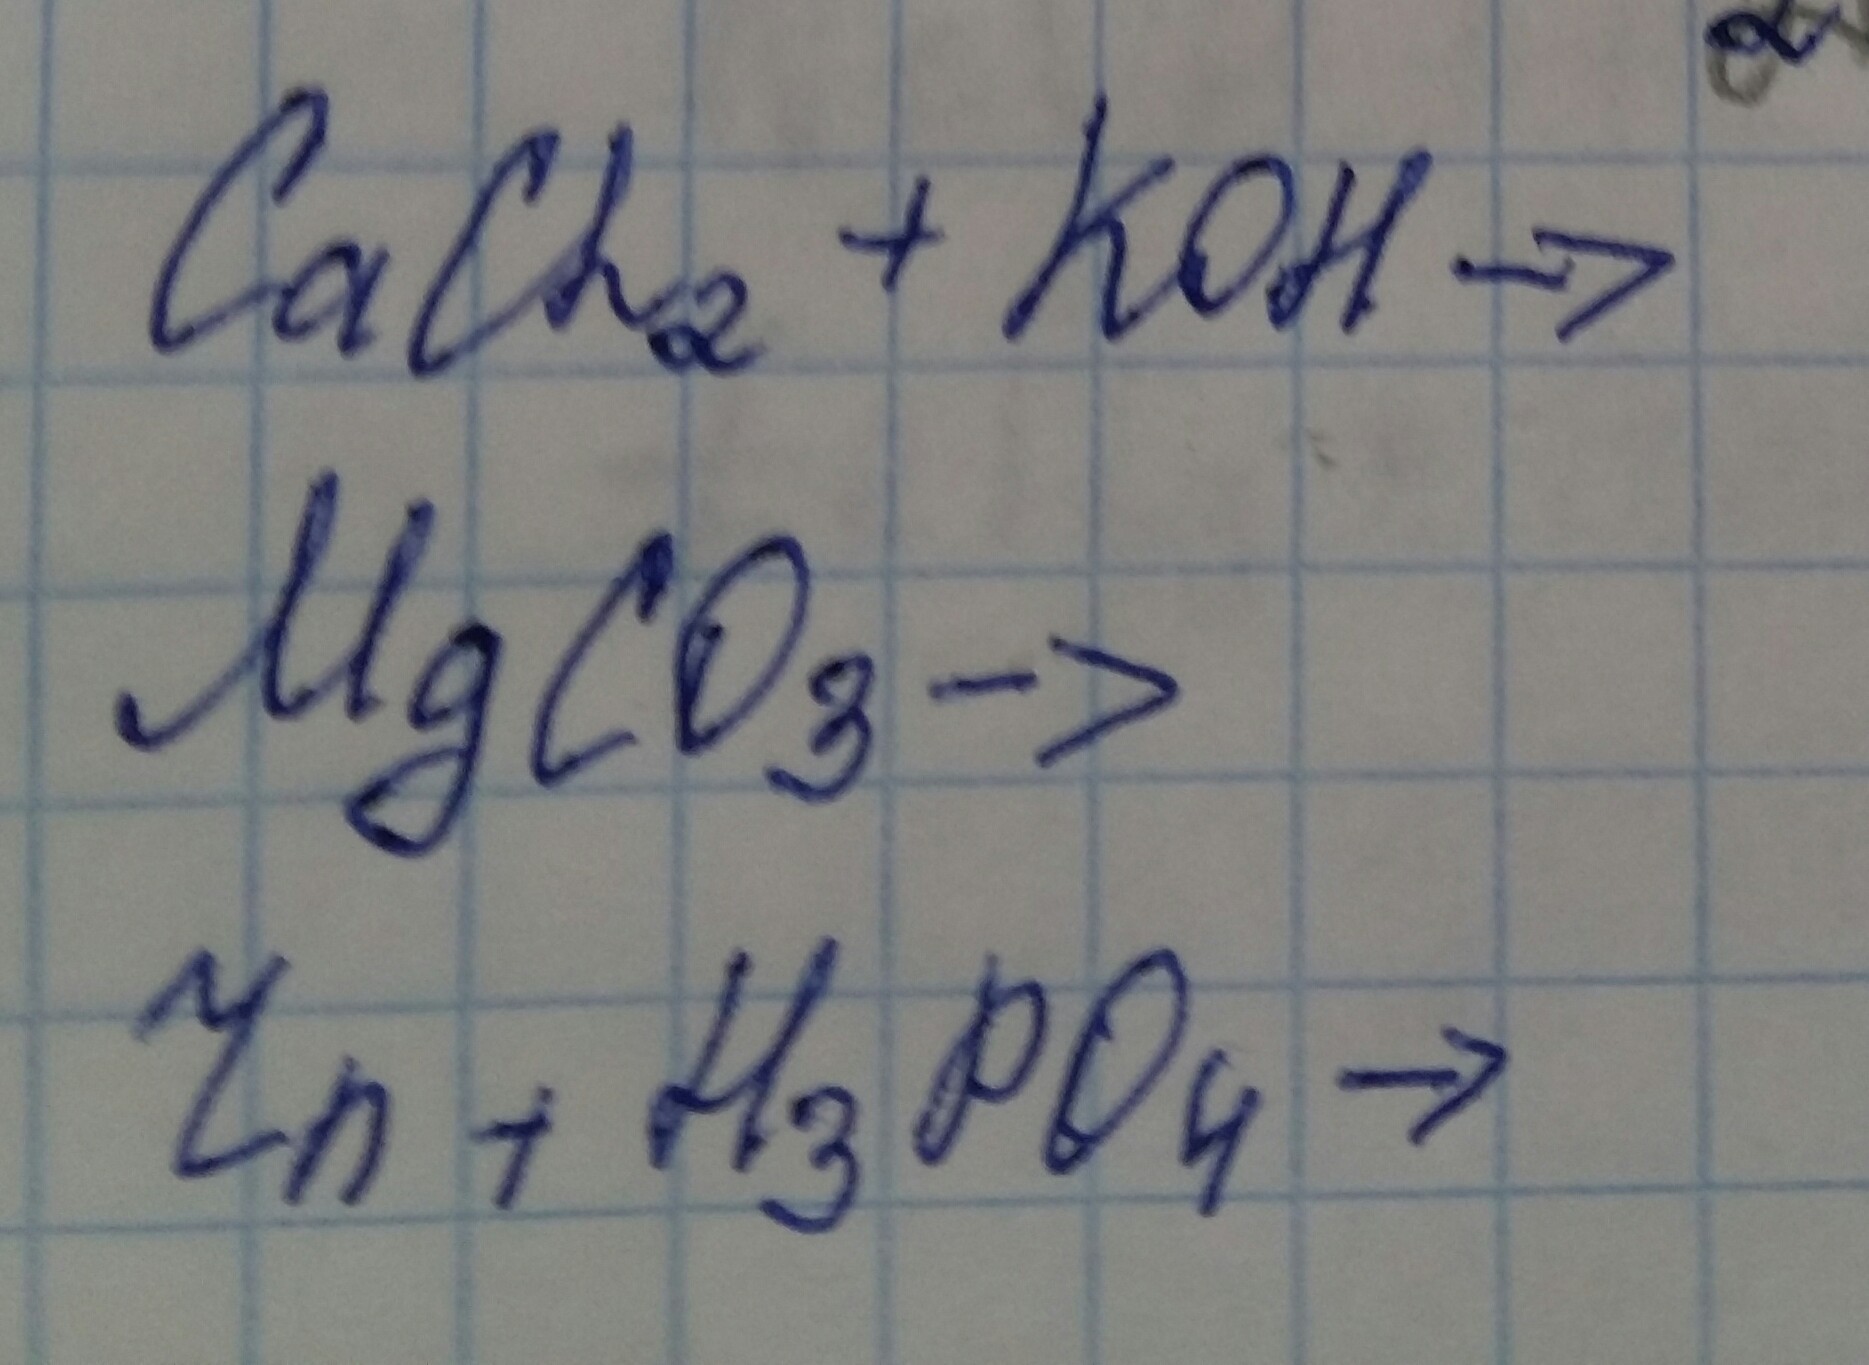 CaCl₂ + KOH →
MgCO₃ →
Zn + H₃PO₄ →